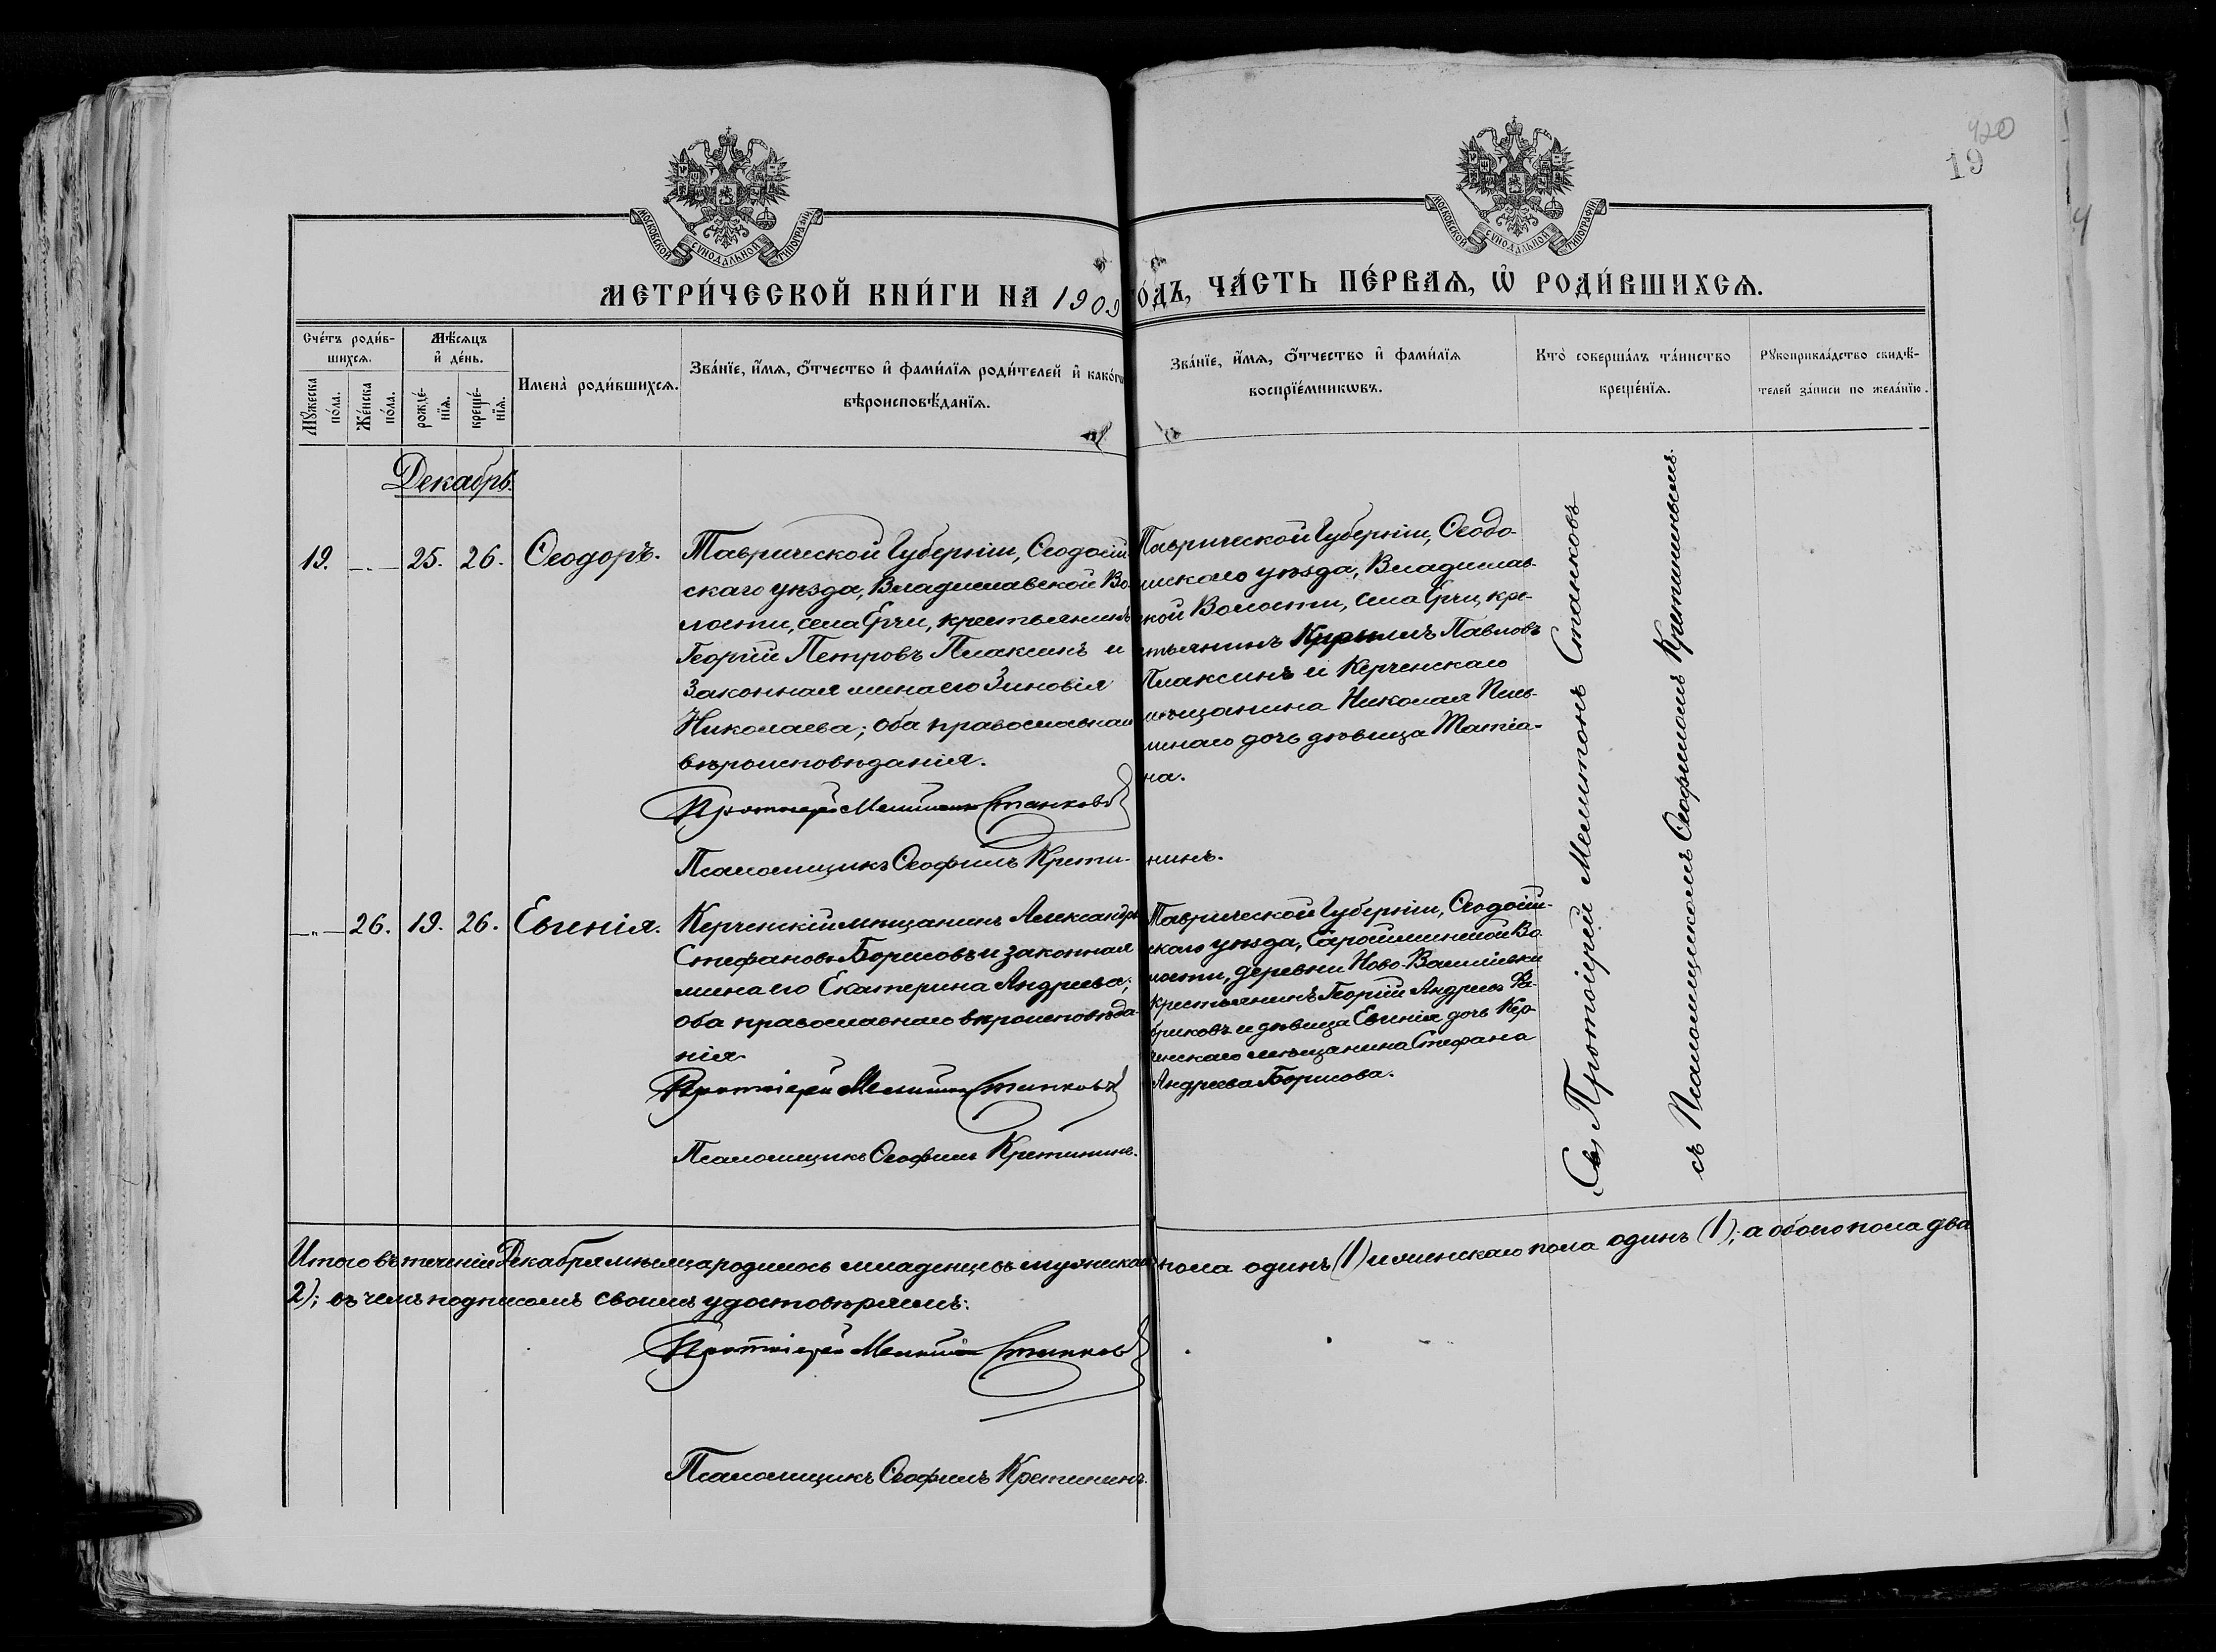 420
19
МОСКОВСКОЙ СѴНОДАЛЬНОЙ ТИПОГРАФІИ
МОСКОВСКОЙ СѴНОДАЛЬНОЙ ТИПОГРАФІИ
МЕТРИ́ЧЕСКОЙ КНИ́ГИ НА 1909 ГО́ДЪ, ЧА́СТЬ ПЕ́РВАѦ, Ѡ҆ РОДИ́ВШИХСѦ.
Сче́тъ роди́в-
шихсѧ.
Мꙋ́жеска по́ла.
Же́нска по́ла.
Мѣ́сѧцъ
и҆ де́нь.
рожде́-
нїѧ.
креще́-
нїѧ.
И҆мена̀ роди́вшихсѧ.
Зва́нїе, и҆́мѧ, ѻ҆́тчество и҆ фами́лїѧ роди́телей и҆ како́гѡ
вѣроисповѣ́данїѧ.
Зва́нїе, и҆́мѧ, ѻ҆́тчество и҆ фами́лїѧ
воспрїе́мникѡвъ.
Кто̀ соверша́лъ та́инство
креще́нїѧ.
Рꙋкоприкла́дство свидѣ́-
телей за́писи по жела́нїю.
Декабрь.
19. —"— 25. 26. Ѳеодоръ.
Таврической Губерніи, Ѳеодосій-
скаго уѣзда, Владиславской Во-
лости, села Ерчи, крестьянинъ
Георгій Петровъ Плаксинъ и
законная жена его Зиновія
Николаева; оба православнаго
вѣроисповѣданія.
Протоіерей Мелитонъ Станковъ
Псаломщикъ Ѳеофилъ Крети-нинъ.
Таврической Губерніи, Ѳеодо-
сійскаго уѣзда, Владислав-
ской Волости, села Ерчи, кре-
стьянинъ Павловъ
Плаксинъ и Керченскаго
мѣщанина Николая
дочь дѣвица Татіа-
на.
—"— 26. 19. 26. Евгенія.
Керченскій мѣщанинъ Александръ
Стефановъ Борисовъ и законная
жена его Екатерина Андреева;
оба православнаго вѣроисповѣда-
нія.
Протоіерей Мелитонъ Станковъ
Псаломщикъ Ѳеофилъ Кретининъ.
Таврической Губерніи, Ѳеодосій-
скаго уѣзда, Сарайминской Во-
лости, деревни Ново-Васильевки
крестьянинъ Георгій Андреевъ
и дѣвица Евгенія дочь Кер-
ченскаго мѣщанина Стефана
Андреева Борисова.
Протоіерей Мелитонъ Станковъ
съ Псаломщикомъ Ѳеофиломъ Кретининымъ.
Итого въ теченіи Декабря мѣсяца родилось младенцевъ мужескаго пола одинъ (1) и женскаго пола одинъ (1); а обоего пола два
2); въ чемъ подписомъ своимъ удостовѣряемъ:
Протоіерей Мелитонъ Станковъ
Псаломщикъ Ѳеофилъ Кретининъ.